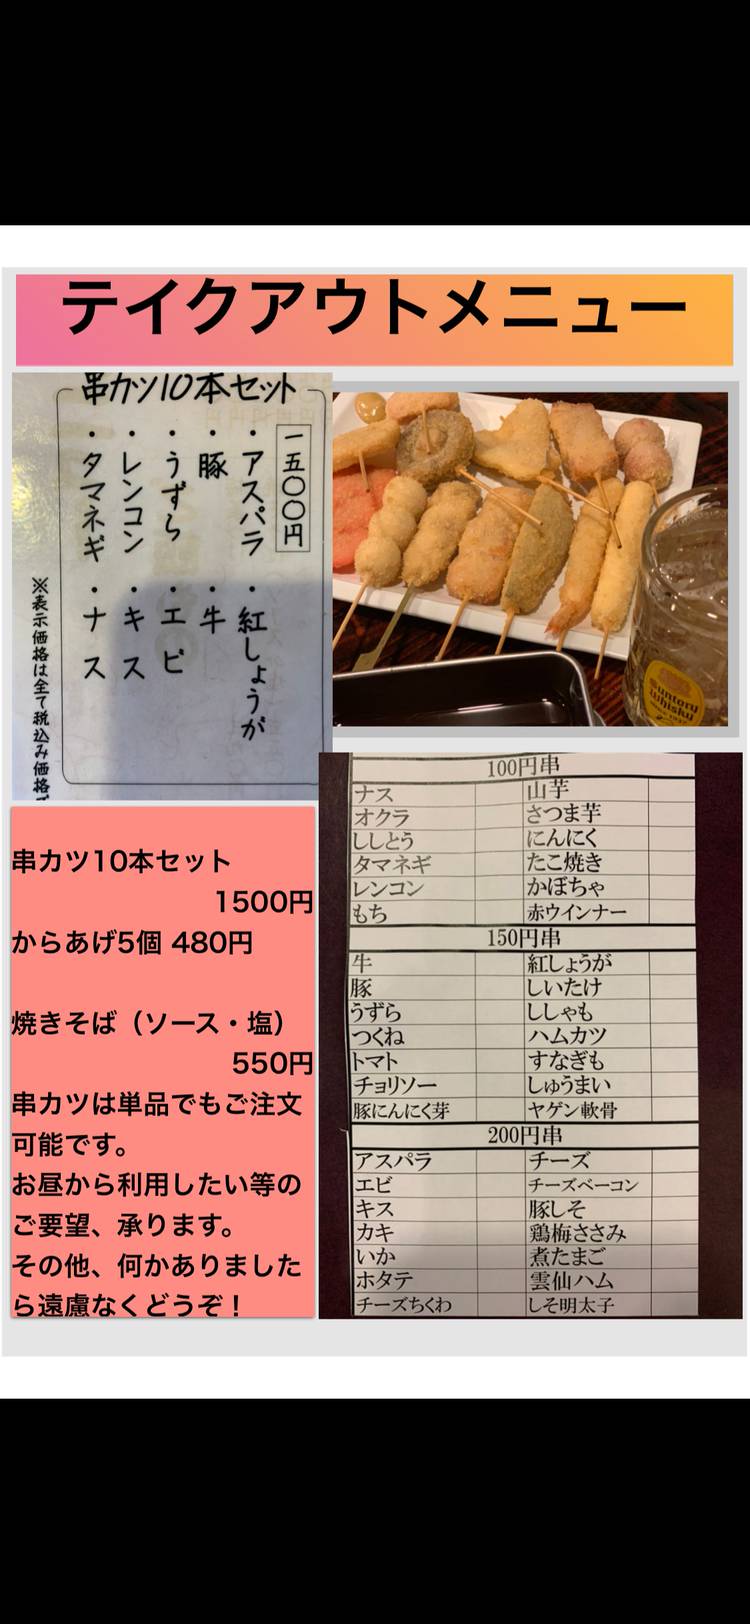 テイクアウトメニュー
串カツ10本セット
一五〇〇円
・アスパラ ・紅しょうが
・豚 ・牛
・うずら ・エビ
・レンコン ・キス
・タマネギ ・ナス
※表示価格は全て税込み価格
Suntory
Whisky
串カツ10本セット
1500円
からあげ5個 480円
焼きそば（ソース・塩）
550円
串カツは単品でもご注文
可能です。
お昼から利用したい等の
ご要望、承ります。
その他、何かありました
ら遠慮なくどうぞ！
100円串
ナス 山芋
オクラ さつま芋
ししとう にんにく
タマネギ たこ焼き
レンコン かぼちゃ
もち 赤ウインナー
150円串
牛 紅しょうが
豚 しいたけ
うずら ししゃも
つくね ハムカツ
トマト すなぎも
チョリソー しゅうまい
豚にんにく芽 ヤゲン軟骨
200円串
アスパラ チーズ
エビ チーズベーコン
キス 豚しそ
カキ 鶏梅ささみ
いか 煮たまご
ホタテ 雲仙ハム
チーズちくわ しそ明太子